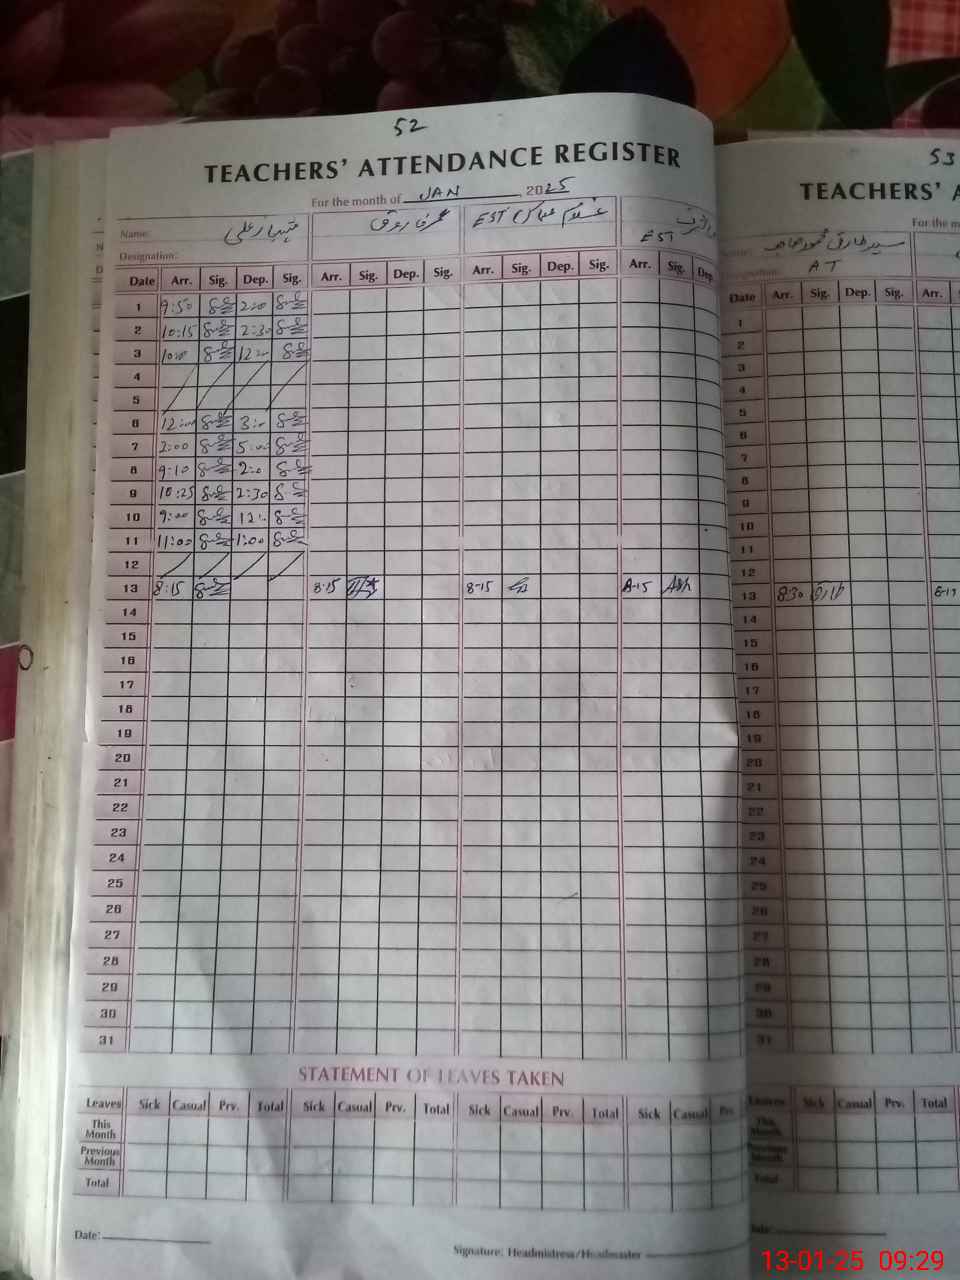 52
TEACHERS' ATTENDANCE REGISTER
For the month of JAN 2025
Name: شہباز علی عمر فاروق غلام عباس EST
Designation: EST
Date Arr. Sig. Dep. Sig. Arr. Sig. Dep. Sig. Arr. Sig. Dep. Sig. Arr. Sig. Dep.
1 9:50 2:00
2 10:15 2:30
3 10:00 12:00
4
5
6 12:00 3:00
7 2:00 5:00
8 9:10 2:00
9 10:25 2:30
10 9:00 12:00
11 11:00 1:00
12
13 8:15 8:15 8-15 8-15
14
15
16
17
18
19
20
21
22
23
24
25
26
27
28
29
30
31
STATEMENT OF LEAVES TAKEN
Leaves Sick Casual Prv. Total Sick Casual Prv. Total Sick Casual Prv. Total Sick Casual Prv.
This Month
Previous Month
Total
Date:
Signature: Headmistress/Headmaster
53
TEACHERS' A
For the m
سید طارق محمود صاحب
AT
Date Arr. Sig. Dep. Sig. Arr.
1
2
3
4
5
6
7
8
9
10
11
12
13 8:30 طارق
14
15
16
17
18
19
20
21
22
23
24
25
26
27
28
29
30
31
Leaves Sick Casual Prv. Total
This Month
Previous Month
Total
13-01-25 09:29